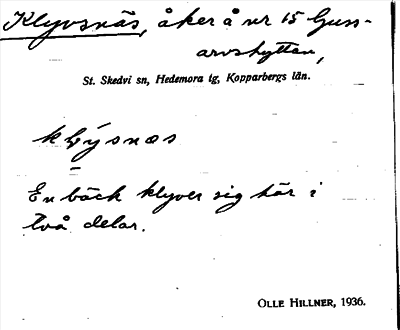 Klyvsnäs, åker å nr 15 Guss-
arvshyttan,
St. Skedvi sn, Hedemora tg, Kopparbergs län.
klýsnæs
En bäck klyver sig här i
två delar.
OLLE HILLNER, 1936.